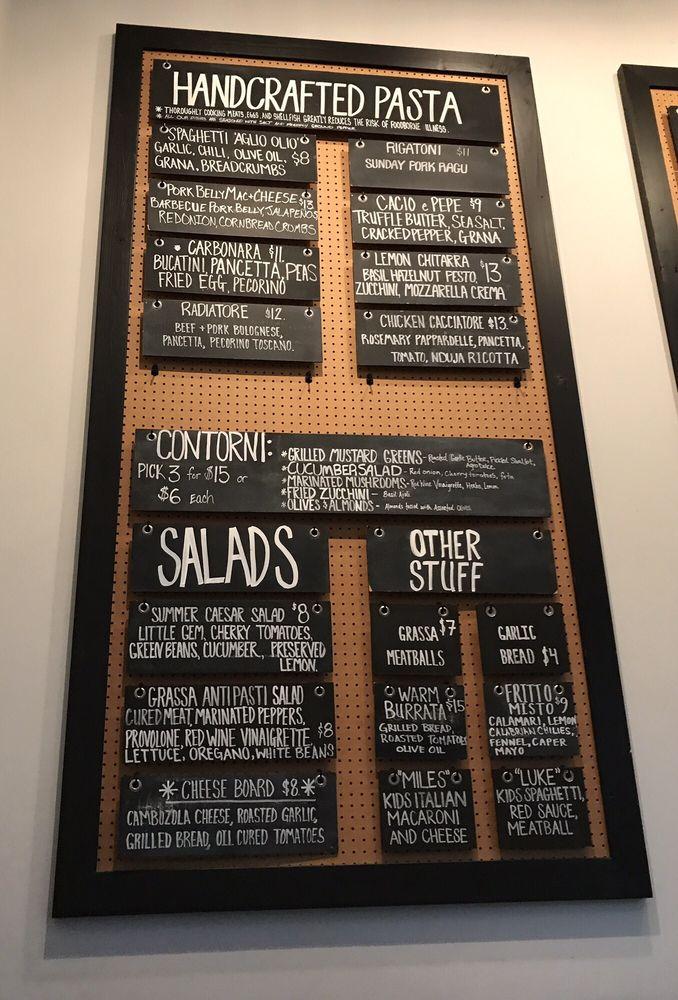 HANDCRAFTED PASTA
* THOROUGHLY COOKING MEATS, EGGS, AND SHELLFISH GREATLY REDUCES THE RISK OF FOODBORNE ILLNESS.
* ALL OUR DISHES ARE SEASONED WITH SALT AND FRESHLY GROUND PEPPER
"SPAGHETTI "AGLIO OLIO"
GARLIC, CHILI, OLIVE OIL, $8
GRANA, BREADCRUMBS
PORK BELLY MAC+CHEESE $13
BARBECUE PORK BELLY, JALAPEÑOS
RED ONION, CORNBREAD CRUMBS
* CARBONARA $11
BUCATINI, PANCETTA, PEAS
FRIED EGG, PECORINO
RADIATORE $12.
BEEF + PORK BOLOGNESE,
PANCETTA, PECORINO TOSCANO.
RIGATONI $11
SUNDAY PORK RAGU
CACIO e PEPE $9
TRUFFLE BUTTER, SEA SALT,
CRACKED PEPPER, GRANA
LEMON CHITARRA $13
BASIL HAZELNUT PESTO,
ZUCCHINI, MOZZARELLA CREMA
CHICKEN CACCIATORE $13.
ROSEMARY PAPPARDELLE, PANCETTA,
TOMATO, NDUJA RICOTTA
CONTORNI:
PICK 3 for $15 or
$6 Each
*GRILLED MUSTARD GREENS- Roasted Garlic Butter, Pickled Shallot,
Agrodolce
*CUCUMBER SALAD- Red onion, Cherry tomatoes, feta
*MARINATED MUSHROOMS- Red Wine Vinaigrette, Herbs, Lemon
*FRIED ZUCCHINI- Basil Aioli
*OLIVES & ALMONDS- Almonds tossed with Assorted Olives
SALADS
SUMMER CAESAR SALAD $8
LITTLE GEM, CHERRY TOMATOES,
GREEN BEANS, CUCUMBER, PRESERVED
LEMON.
GRASSA ANTIPASTI SALAD
CURED MEAT, MARINATED PEPPERS,
PROVOLONE, RED WINE VINAIGRETTE $8
LETTUCE, OREGANO, WHITE BEANS
*CHEESE BOARD $8*
CAMBOZOLA CHEESE, ROASTED GARLIC,
GRILLED BREAD, OIL CURED TOMATOES
OTHER
STUFF
GRASSA $7
MEATBALLS
GARLIC
BREAD $4
WARM
BURRATA $15
GRILLED BREAD,
ROASTED TOMATO
OLIVE OIL
FRITTO
MISTO $9
CALAMARI, LEMON
CALABRIAN CHILIES,
FENNEL, CAPER
MAYO
"MILES"
KIDS ITALIAN
MACARONI
AND CHEESE
"LUKE"
KIDS SPAGHETTI,
RED SAUCE,
MEATBALL